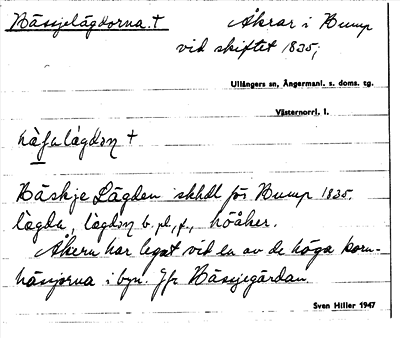 Hässjelägdorna. † Åkrar i Bump
vid skiftet 1835;
Ullångers sn, Ångermanl. s. doms. tg.
Västernorrl. l.
lägdan †
Häskje Lägden skhdl för Bump 1835.
lägda, b. pl., f., höåker.
Åkern har legat vid en av de höga korn-
hässjorna i byn. Jfr Hässjegärdan.
Sven Hiller 1947